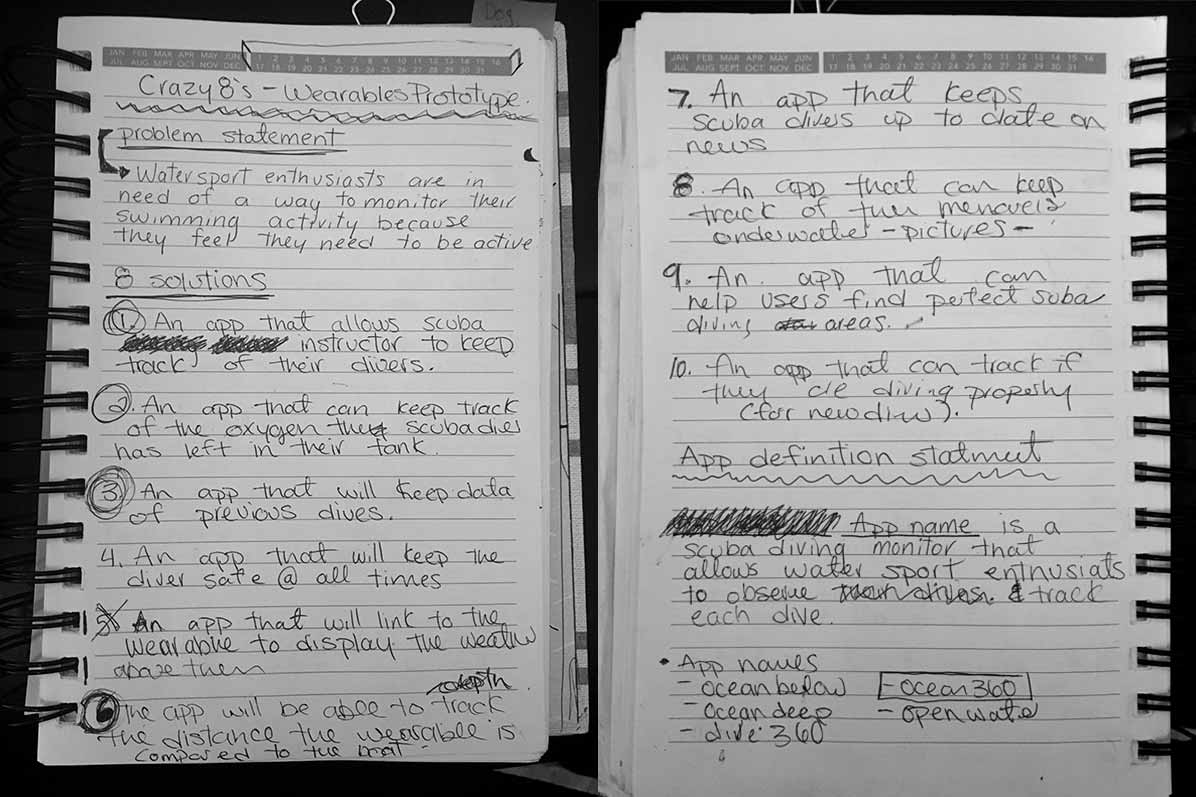 Dog
JAN FEB MAR APR MAY JUN 1 2 3 4 5 6 7 8 9 10 11 12 13 14 15 16
JUL AUG SEPT OCT NOV DEC 17 18 19 20 21 22 23 24 25 26 27 28 29 30 31
Crazy 8's - Wearables Prototype.
problem statement
Watersport enthusiasts are in
need of a way to monitor their
swimming activity because
they feel they need to be active
8 solutions
1. An app that allows scuba
instructor to keep
track of their divers.
2. An app that can keep track
of the oxygen the scuba
has left in their tank.
3 An app that will keep data
of previous dives.
4. An app that will keep the
diver safe @ all times
5. An app that will link to the
to display the
above them
depth
6 The app will be able to track
the distance the wearable is
compared to the boat -
JAN FEB MAR APR MAY JUN 1 2 3 4 5 6 7 8 9 10 11 12 13 14 15 16
JUL AUG SEPT OCT NOV DEC 17 18 19 20 21 22 23 24 25 26 27 28 29 30 31
7. An app that keeps
scuba divers up to date on
news
8. An app that can keep
track of
underwater - pictures -
9. An app that can
help users find perfect suba
diving areas.
10. An app that can track if
they are diving properly
(for new ).
App definition
App name is a
scuba diving monitor that
allows water sport enthusiats
to observe & track
each dive.
• App names
- ocean below - ocean360
- ocean deep - open water
- dive 360